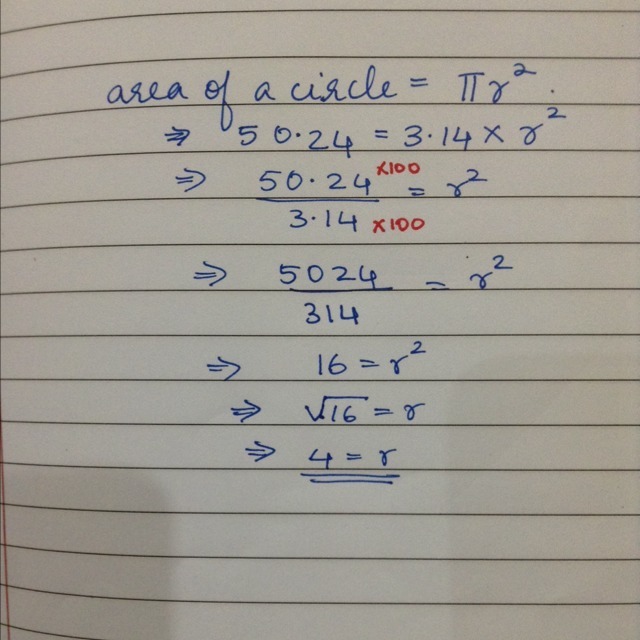 area of a circle = πr².
⇒ 50.24 = 3.14 × r²
⇒ 50.24 ×100 / 3.14 ×100 = r²
⇒ 5024 / 314 = r²
⇒ 16 = r²
⇒ √16 = r
⇒ 4 = r